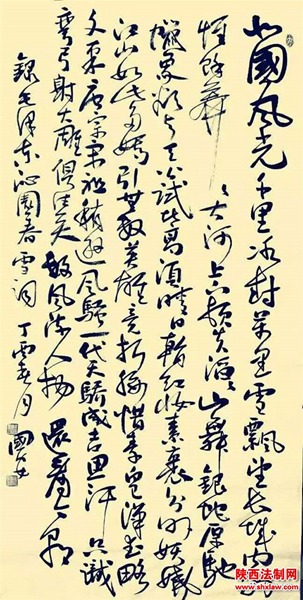 北國風光千里冰封萬里雪飄望長城内外
惟餘莽莽大河上下頓失滔滔山舞銀蛇原馳
蠟象欲与天公試比高須晴日看紅妝素裹分外妖嬈
江山如此多嬌引無數英雄競折腰惜秦皇漢武略
文采唐宗宋祖稍遜風騷一代天驕成吉思汗只識
彎弓射大雕俱往矣數風流人物還看今朝
錄毛澤東沁園春雪詞
陕西法制网
www.shxlaw.com